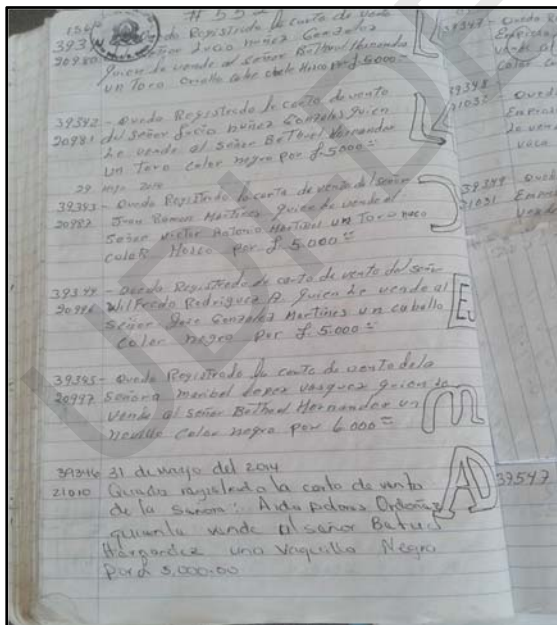 # 552
156
393 ndo Registrado la carta de venta
20980 señor Lucio nuñez Gonzales
quien le vende al señor Bethuel Hernandez
un Toro Criollo cabe chele Hosco por L 5.000=
39342 - Quedo Registrado la carta de venta
20981 del señor Lucio nuñez Gonzales quien
Le vende al señor Bethuel Hernandez
un Toro color negro por L. 5000=
29 mayo 2014
39343 - Quedo Registrado la carta de venta del señor
20982 Juan Ramon Martinez quien le vende al
señor victor Antonio Martinez un Toro
color Hosco por L 5.000=
39344 - Quedo Registrado la carta de venta del señor
20996 Wilfredo Rodriguez A. quien Le vende al
señor Jose Gonzalez Martines un caballo
color negro por L. 5.000=
EJ
39345 - Quedo Registrado la carta de venta de la
20997 señora maribel Lopez vasquez quien le
vende al señor Bethuel Hernandez un
novillo color negro por 6.000=
m
39346 31 de mayo del 2014
21010 Queda registrada la carta de venta
de la senora: Aida Ordoñez
quien la vende al señor Betuel
Hernandez una Vaquilla Negra
por L 5,000.00
AD
39347 - Quedo
Empeira
vende al
color
39348 - Quedo
vende
vaca
39349 Quedo
21031
vende
39547